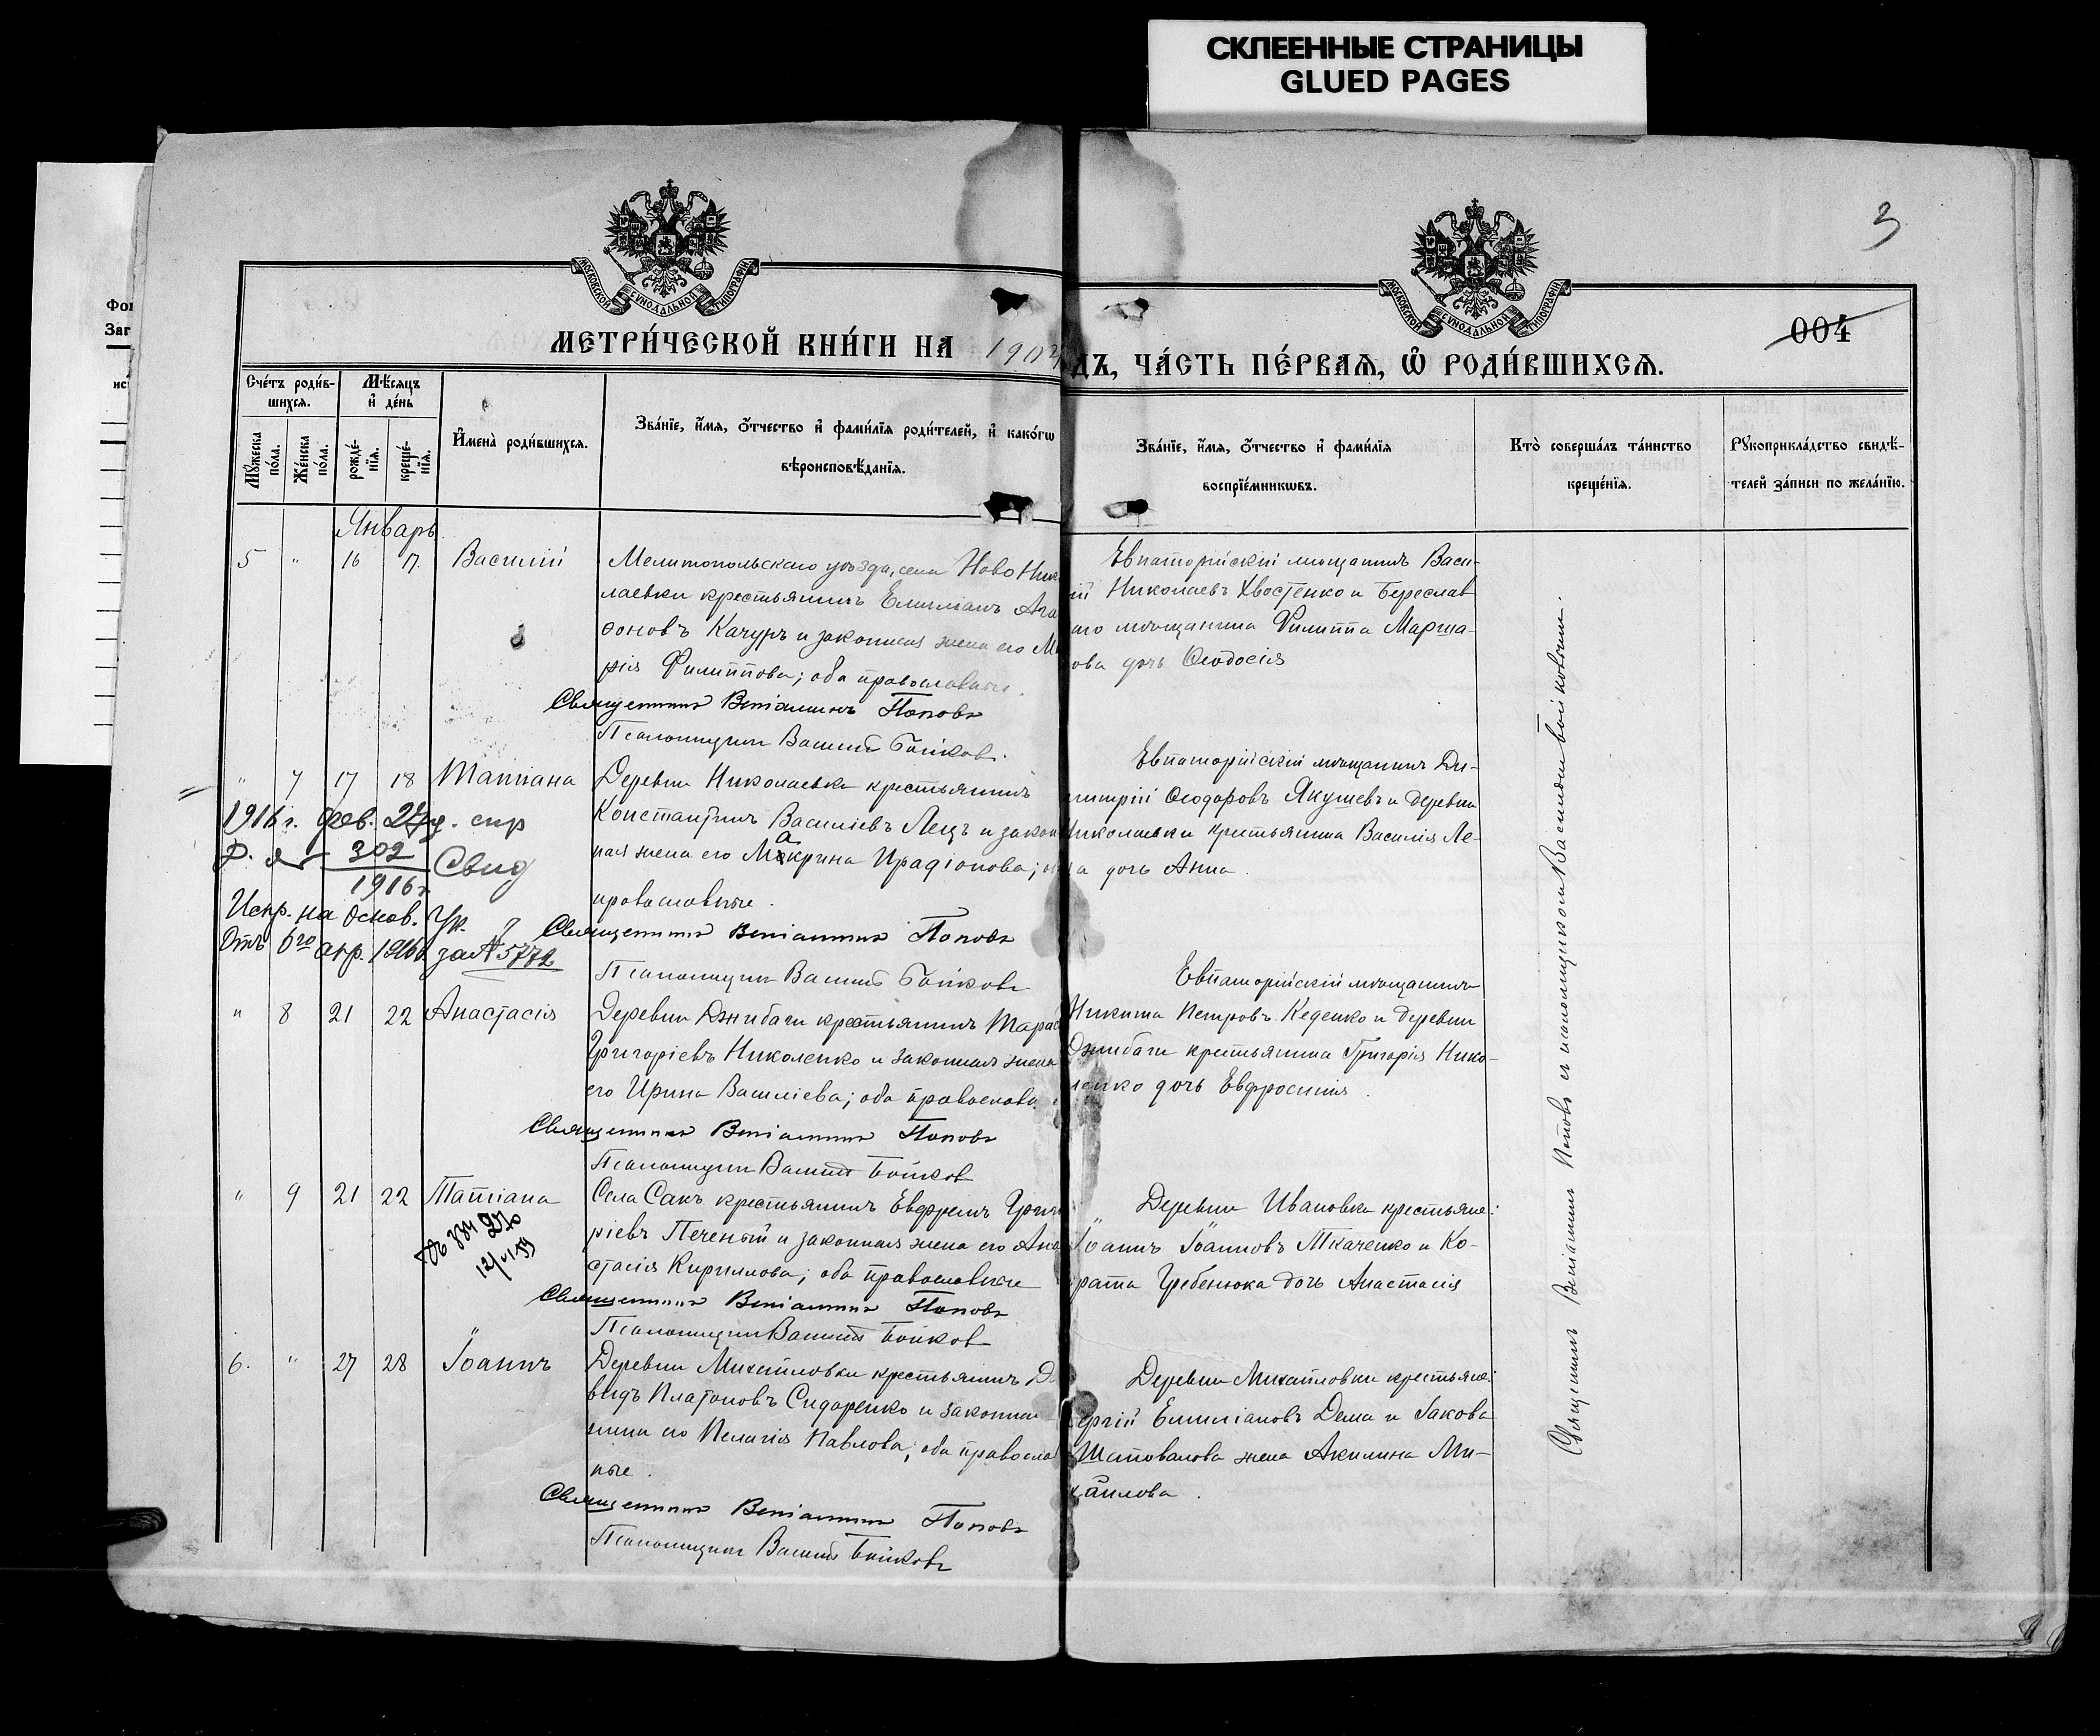 СКЛЕЕННЫЕ СТРАНИЦЫ
GLUED PAGES
3
004
МОСКОВСКОЙ СУНОДАЛЬНОЙ ТИПОГРАФІИ
МОСКОВСКОЙ СУНОДАЛЬНОЙ ТИПОГРАФІИ
МЕТРИ́ЧЕСКОЙ КНИ́ГИ НА 190
ДЪ, ЧА́СТЬ ПЕ́РВАѦ, Ѡ҆ РОДИ́ВШИХСѦ.
Сче́тъ роди́в-
шихсѧ.
Мѣ́сѧцъ
и҆ де́нь
Мꙋ́жеска
по́ла.
Же́нска
по́ла.
рожде́-
нїѧ.
креще́-
нїѧ.
И҆мена̀ роди́вшихсѧ.
Зва́нїе, и҆́мѧ, ѻ҆́тчество и҆ фами́лїѧ роди́телей, и҆ како́гѡ
вѣроисповѣ́данїѧ.
Зва́нїе, и҆́мѧ, ѻ҆́тчество и҆ фами́лїѧ
воспрїе́мникѡвъ.
Кто̀ соверша́лъ та́инство
креще́нїѧ.
Рꙋкоприкла́дство свидѣ́-
телей за́писи по жела́нїю.
Январь
5 " 16 17. Василій
Мелитопольскаго уѣзда, села Ново Нико
лаевки крестьянинъ Емиліанъ Ага
ѳоновъ Качуръ и законная жена его Ма
рія Филиппова; оба православные.
Священникъ Веніаминъ Поповъ
Псаломщикъ Василій Бойковъ.
Евпаторійскій мѣщанинъ Васи-
ій Николаевъ Хвостенко и Береслав
аго мѣщанина Филиппа Марша-
ова дочь Ѳеодосія
" 7 17 18 Татіана
Деревни Николаевка крестьянинъ
Константинъ Василіевъ Лещъ и закон
ная жена его Макрина Ирадіонова; о
православные.
Священникъ Веніаминъ Поповъ
Псаломщикъ Василій Бойковъ
Евпаторійскій мѣщанинъ Ди-
митрій Ѳеодоровъ Якушевъ и деревни
Николаевки крестьянина Василія Ле-
а дочь Анна.
1916 г. фев.
302
1916 г.
Свид
Испр. на основ. Ук.
Отъ 6го апр. 1916 г за № 5772
" 8 21 22 Анастасія
Деревни Джибаги крестьянинъ Тарас
Григоріевъ Николенко и законная жена
его Ирина Василіева; оба православн
Священникъ Веніаминъ Поповъ
Псаломщикъ Василій Бойков
Евпаторійскій мѣщанинъ
Никита Петровъ Кеденко и деревни
Джибаги крестьянина Григорія Нико-
ленко дочь Евфросинія.
" 9 21 22 Татіана
Села Сакъ крестьянинъ Евфремъ Григо
ріевъ Печеный и законная жена его Ана
стасія Кириллова; оба православные
Священникъ Веніаминъ Поповъ
Псаломщикъ Василій Бойков
Деревни Ивановка крестьяне:
Іоаннъ Іоанновъ Ткаченко и Ко-
рата Гребенюка дочь Анастасія
6. " 27 28 Іоаннъ
Деревни Михайловки крестьянинъ Д
видъ Платоновъ Сидоренко и законная
жена его Пелагія Павлова; оба православ
ные.
Священникъ Веніаминъ Поповъ
Псаломщикъ Василій Бойковъ
Деревни Михайловки крестьяне:
ергій Емиліановъ Дема и Іакова
Шаповалова жена Акилина Ми-
хаилова.
Священникъ Веніаминъ Поповъ съ псаломщикомъ Василіемъ Бойковымъ.